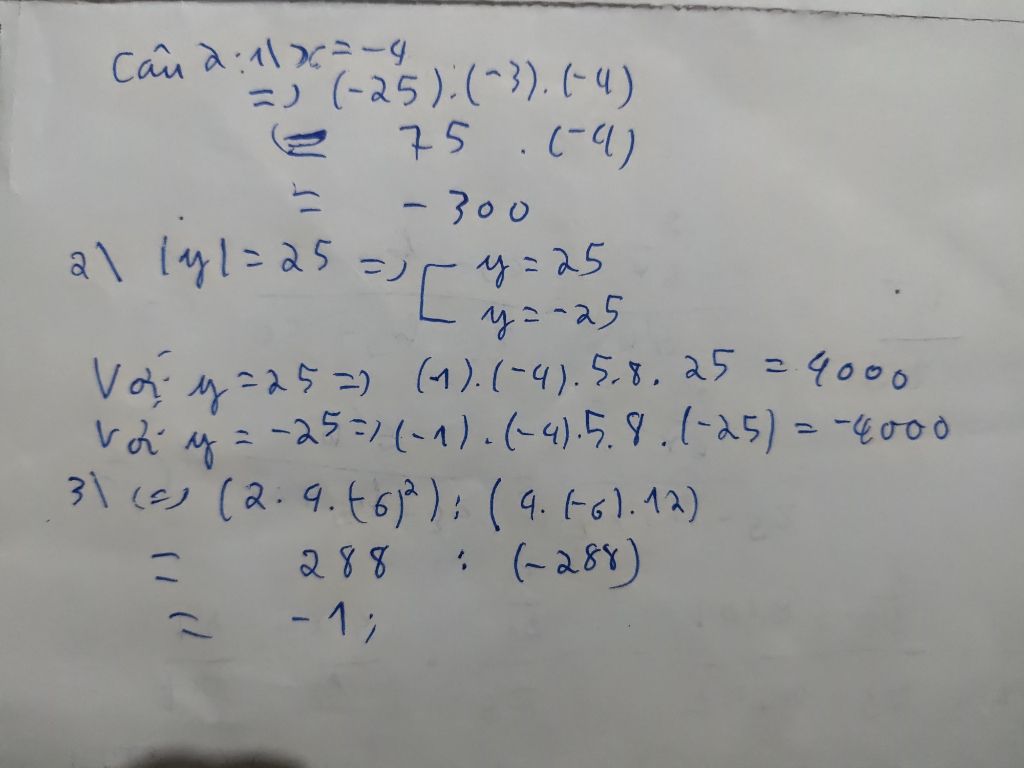 Câu 2: 1\ x = -4
=> (-25).(-3).(-4)
= 75 . (-4)
= -300
2\ |y| = 25 => [ y = 25
y = -25
Với y = 25 => (-1).(-4).5.8.25 = 4000
Với y = -25 => (-1).(-4).5.8.(-25) = -4000
3\ <=> (2.4.(-6)²) : (4.(-6).12)
= 288 : (-288)
= -1;